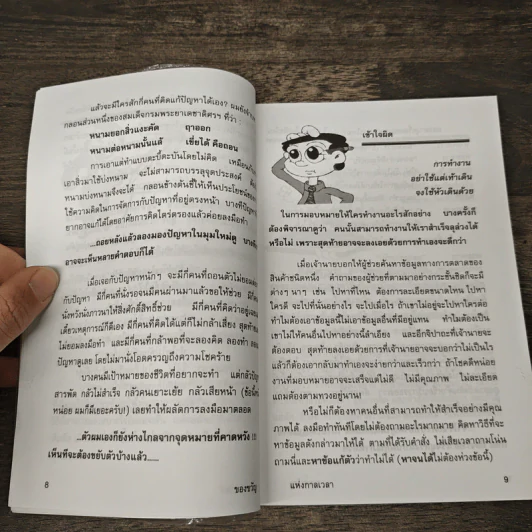 แล้วจะมีใครสักกี่คนที่คิดแก้ปัญหาได้เอง? ผมยัง
กลอนส่วนหนึ่งของสมเด็จกรมพระยาเดชาดิศรฯ ที่ว่า
หนามยอกสิ่วแงะคัด ฤาออก
หนามต่อหนามนั้นแต้ เขี่ยได้ คือถอน
การเอาแต่ทำแบบตะบี้ตะบันโดยไม่คิด เหมือนกับ
เอาสิ่วมาใช้บ่งหนาม จะไม่สามารถบรรลุจุดประสงค์
หนามบ่งหนามจึงจะได้ กลอนข้างต้นชี้ให้เห็นประโยชน์
ใช้ความคิดในการจัดการกับปัญหาที่อยู่ตรงหน้า บางที
ยากอาจแก้ได้โดยอาศัยการคิดไตร่ตรองแล้วค่อยลงมือทำ
...ถอยหลังแล้วลองมองปัญหาในมุมใหม่ดู
อาจจะเห็นหลายคำตอบก็ได้
เมื่อเจอกับปัญหาหนักๆ จะมีกี่คนที่ถอนตัวไม่ยอม
กับปัญหา มีกี่คนที่นั่งรอจนมีคนผ่านมาแล้วขอให้ช่วย มีกี่
นั่งหวังนั่งภาวนาให้สิ่งศักดิ์สิทธิ์ช่วย มีกี่คนที่คิดว่าอยู่
เดี๋ยวเหตุการณ์ก็ดีเอง มีกี่คนที่คิดได้แต่ก็ไม่กล้าเสี่ยง สุดท้าย
ไม่ยอมลงมือทำ และมีกี่คนที่กล้าพอที่จะลองคิด ลองทำ
ปัญหาดูเลย โดยไม่มานั่งโอดครวญถึงความโชคร้าย
บางคนมีเป้าหมายของชีวิตที่อยากจะทำ แต่กลัวปัญหา
สารพัด กลัวไม่สำเร็จ กลัวคนเยาะเย้ย กลัวเสียหน้า
หน่อย ผมก็มีเยอะครับ!) เลยทำให้ผลัดการลงมือมาตลอด
...ตัวผมเองก็ยังห่างไกลจากจุดหมายที่คาดหวัง
เห็นทีจะต้องขยับตัวบ้างแล้ว.....
8 ของขวัญ
เข้าใจผิด
การทำงาน
อย่าใช้แต่เท้าเดิน
จงใช้หัวเดินด้วย
ในการมอบหมายให้ใครทำงานอะไรสักอย่าง บางครั้งก็
ต้องพิจารณาดูว่า คนนั้นสามารถทำงานให้เราสำเร็จลุล่วงได้
หรือไม่ เพราะสุดท้ายอาจจะลงเอยด้วยการทำเองจะดีกว่า
เมื่อเจ้านายบอกให้ผู้ช่วยค้นหาข้อมูลทางการตลาดของ
สินค้าชนิดหนึ่ง คำถามของผู้ช่วยที่ตามมาอย่างกระชั้นชิดก็จะมี
ต่างๆ นาๆ เช่น ไปหาที่ไหน ต้องการละเอียดขนาดไหน ไปหา
ใครดี จะไปที่นั่นอย่างไร จะไปเมื่อไร ถ้าเขาไม่อยู่จะไปหาใครต่อ
ทำไมต้องเอาข้อมูลนี้ไม่เอาข้อมูลอื่นที่มีอยู่แทน ทำไมต้องเป็น
เขาไม่ให้คนอื่นไปทำอย่างนี้ลำเอียง และอีกจิปาถะที่เจ้านายจะ
ต้องตอบ สุดท้ายลงเอยด้วยการที่เจ้านายอาจจะบอกว่าไม่เป็นไร
แล้วก็ต้องเอากลับมาทำเองจะง่ายกว่าและเร็วกว่า ถ้าโชคดีหน่อย
งานที่มอบหมายอาจจะเสร็จแต่ไม่ดี ไม่มีคุณภาพ ไม่ละเอียด
แถมต้องตามทวงอยู่นาน!
หรือไม่ก็ต้องหาคนอื่นที่สามารถทำให้สำเร็จอย่างมีคุณ
ภาพได้ ลงมือทำทันทีโดยไม่ต้องถามอะไรมากมาย คิดหาวิธีที่จะ
หาข้อมูลดังกล่าวมาให้ได้ ตามที่ได้รับคำสั่ง ไม่เสียเวลาถามโน่น
ถามนี่และหาข้อแก้ตัวว่าทำไม่ได้ (หาจนได้ไม่ต้องห่วงข้อนี้)
แห่งกาลเวลา 9